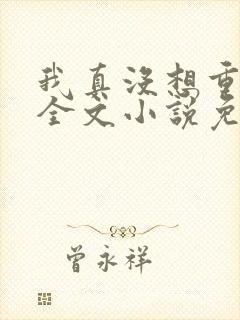 我真没想重
全文小说免
曾永祥